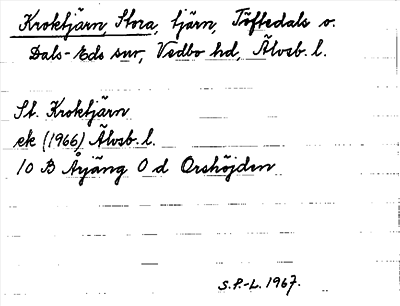 Kroktjärn, Stora, tjärn, Töftedals o.
Dals-Eds snr, Vedbo hd, Älvsb. l.
St. Kroktjärn
ek (1966) Älvsb. l.
10 B Årjäng 0 d Orshöjden
S.P.-L. 1967.